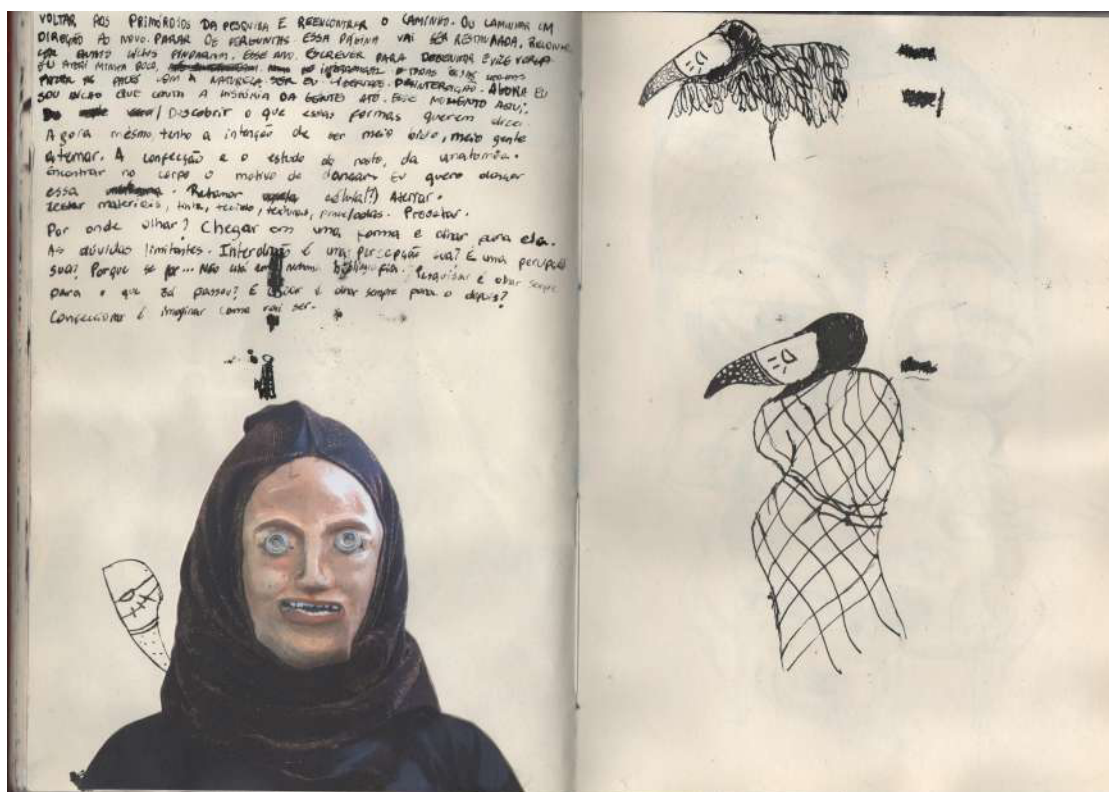 VOLTAR AOS PRIMÓRDIOS DA PESQUISA E REENCONTRAR O CAMINHO. OU CAMINHAR EM
DIREÇÃO AO NOVO. PARAR DE PERGUNTAS ESSA PÁGINA VAI SER
ESSE ANO. ESCREVER PARA DESENHAR E VICE VERSA
EU ABRI MINHA BOCA,
A NATUREZA SER EU AGORA EU
SOU BICHO QUE CONTA A HISTÓRIA DA GENTES ATÉ ESSE MOMENTO AQUI.
Descobrir o que essas formas querem dizer.
Agora mesmo tenho a intenção de ser meio bicho, meio gente
A confecção e o estudo do rosto, da anatomia.
Encontrar no corpo o motivo de dançar. Eu quero dançar
essa . Retomar Aterrar.
Testar materiais, tinta, tecido, texturas, Projetar.
Por onde olhar? Chegar em uma forma e olhar para ela.
As dúvidas limitantes. é uma percepção sua? É uma percepção
sua? Porque se for... Não está em nenhuma bibliografia. Pesquisar é olhar sempre
para o que já passou? E é olhar sempre para o depois?
Confeccionar é imaginar como vai ser.